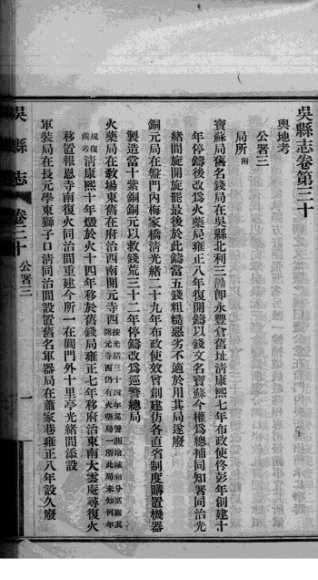 吳縣志卷第三十
輿地考
公署三
局所附
寶蘇局舊名錢局在吳縣北利三圖卽永豐倉舊址清康熙七年布政使佟彭年創建十
年停鑄後改爲火藥局雍正八年復開鑄以錢文名寶蘇今權爲總補同知署同治光
緒間旋開旋罷最後於此鑄當五錢粗糙惡劣不適於用其局遂廢
銅元局在盤門內梅家橋清光緒二十九年布政使效曾創建仿各直省制度購置機器
製造當十紫銅銅元以救錢荒三十二年停鑄改爲巡警總局
火藥局在教場東舊在府治西南開元寺西
復清康熙十年燬於火十四年移於舊錢局雍正七年移府治東南大雲庵尋復火
移置報恩寺南復火同治間重建今所一在閶門外十里亭光緒間添設
軍裝局在長元學東獅子口清同治間設置舊名軍器局在蕭家巷雍正八年設久廢
吳縣志
卷三十
公署三
一